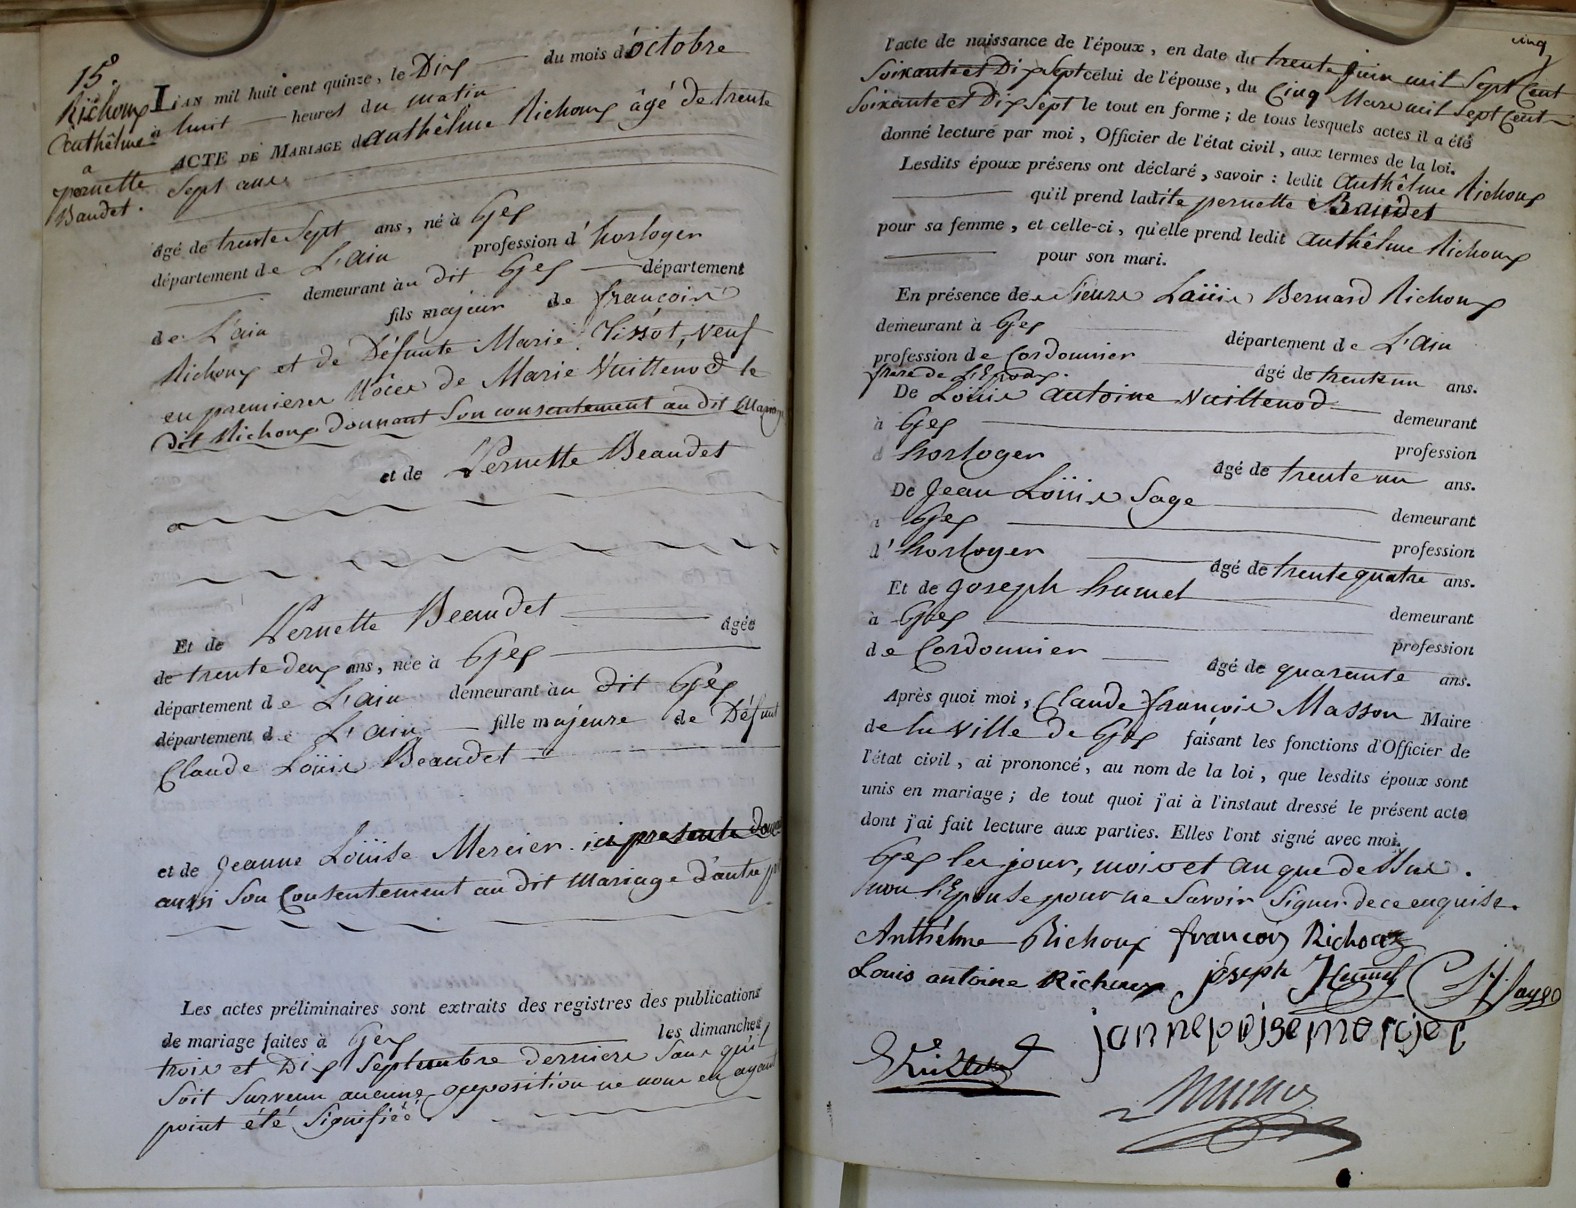 15.e
Richoux
Anthêlme
a
pernette
Baudet.
L'AN mil huit cent quinze, le Dix du mois d'octobre
à huit heures du matin
ACTE DE MARIAGE d'anthêlme Richoux âgé de trente
Sept ans
âgé de trente Sept ans, né à Gex
département de L'ain profession d'horloger
demeurant au dit Gex département
de L'ain fils majeur de françois
Richoux et de Défunte Marie Tissot, Veuf
en premieres Nôces de Marie Vuillenod le
dit Richoux donnant Son consentement au dit Mariage
et de Pernette Beaudet
Et de Pernette Beaudet âgée
de trente deux ans, née à Gex
département de L'ain demeurant au dit Gex
département de L'ain fille majeure de Défunt
Claude Loüis Beaudet
et de Jeanne Loüise Mercier ici presente donnant
aussi Son Consentement au dit Mariage d'autre
Les actes préliminaires sont extraits des registres des publications
de mariage faites à Gex les dimanches
trois et Dix Septembre derniers Sans qu'il
Soit Survenu aucune opposition ne nous en ayant
point été Signifiée.
cinq
l'acte de naissance de l'époux, en date du trente juin mil Sept Cent
Soixante et Dix Sept celui de l'épouse, du Cinq Mars mil Sept Cent
Soixante et Dix Sept le tout en forme; de tous lesquels actes il a été
donné lecture par moi, Officier de l'état civil, aux termes de la loi.
Lesdits époux présens ont déclaré, savoir: ledit Anthêlme Richoux
qu'il prend ladite pernette Baudet
pour sa femme, et celle-ci, qu'elle prend ledit Anthêlme Richoux
pour son mari.
En présence de Sieurs Loüis Bernard Richoux
demeurant à Gex département de L'Ain
profession de Cordonnier âgé de trente un ans.
frere de L'Epoux.
De Loüis antoine Vuillenod demeurant
à Gex profession
d'horloger âgé de trente un ans.
De Jean Loüis Sage demeurant
à Gex profession
d'horloger âgé de trente quatre ans.
Et de Joseph humel demeurant
à Gex profession
de Cordonnier âgé de quarante ans.
Après quoi moi, Claude françois Masson Maire
de la Ville de Gex faisant les fonctions d'Officier de
l'état civil, ai prononcé, au nom de la loi, que lesdits époux sont
unis en mariage; de tout quoi j'ai à l'instant dressé le présent acte
dont j'ai fait lecture aux parties. Elles l'ont signé avec moi,
Gex les jour, mois et an que dessus.
non l'Epouse pour ne Savoir Signer de ce enquise.
Anthelme Richoux francois Richoux
Louis antoine Richoux joseph Humel Sage
janneloisemersier